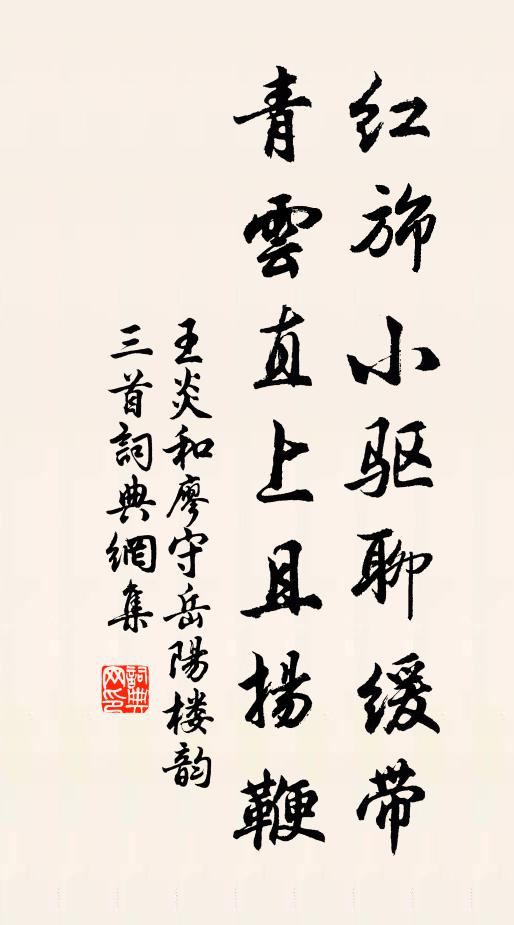 红旆小驱聊缓带
青雲直上且揚鞭
王炎和廖守岳陽楼韵
三首詞典網集
詞典
网印